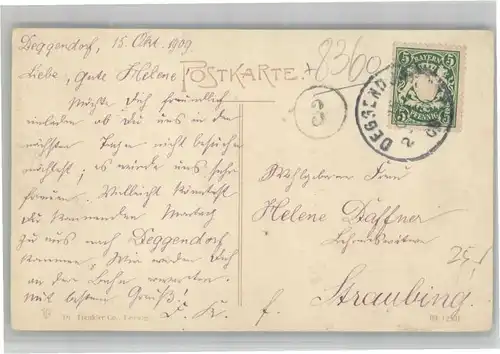 Deggendorf, 15. Okt. 1909.
Liebe, gute Helene
POSTKARTE.
8360
Möchte Dich freundlich
einladen ob Du uns in den
nächsten Tagen nicht besuchen
möchtest; es würde uns sehr
freuen. Vielleicht könntest
Du kommenden Montag
zu uns nach Deggendorf
kommen, Wir werden Dich
an der Bahn erwarten.
Mit besten Gruß!
3
DEGGEND
BAYERN
5 5
PFENNIG
Wohlgeborne Frau
Helene Daffner
25,-
Straubing.